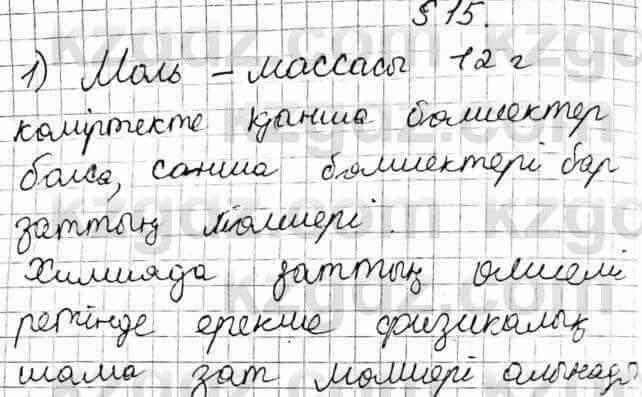 § 15.
1) Моль – массасы 12 г
көміртекте қанша бөлшектер
болса, сонша бөлшектері бар
заттың мөлшері.
Химияда заттың өлшемі
ретінде ерекше физикалық
шама зат мөлшері алынады